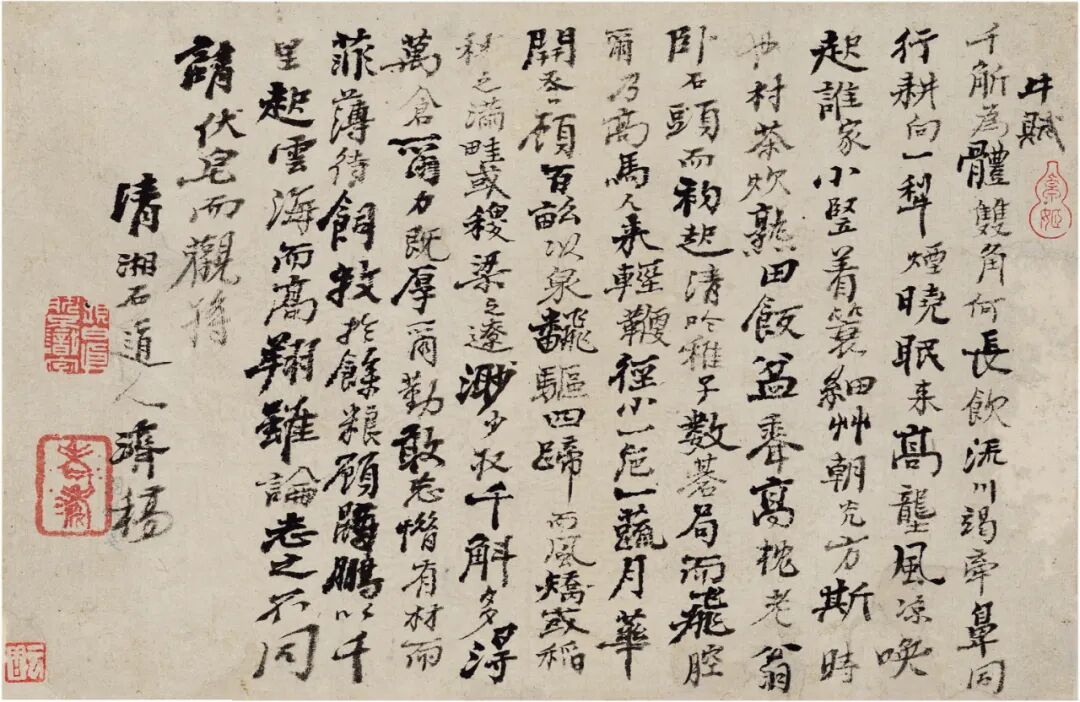 牛賦
千觔為體雙角何長飲流川竭牽鼻同
行耕向一犁煙曉眠来高壟風凉喚
起誰家小竪着蓑細艸朝光方斯時
也村茶炊熟田飯盆香高枕老翁
卧石頭而初起清吟稚子數碁局而飛腔
爾乃高馬人来輕鞭徑小一庖一蔬月華
開吾顔百畝以泉翻驅四蹄而風矯或稻
秋之满畦或稷梁之遼渺少收千斛多得
萬倉爾力既厚爾勤敢忘惜有材而
菲薄待飼牧於餘粮顧鵾鵬以千
里起雲海而高翔雖論志之不同
請伏皂而觀將
清湘石道人濟稿